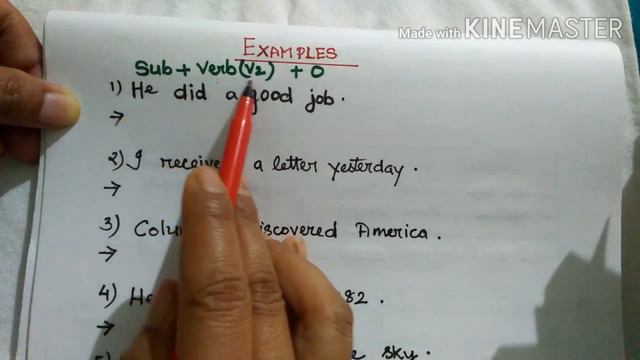 Made with KINEMASTER
EXAMPLES
Sub + Verb (V2) + O
1) He did a good job.
→
2) I a letter yesterday.
→
3) discovered America.
→
4) 82.
→
sky.